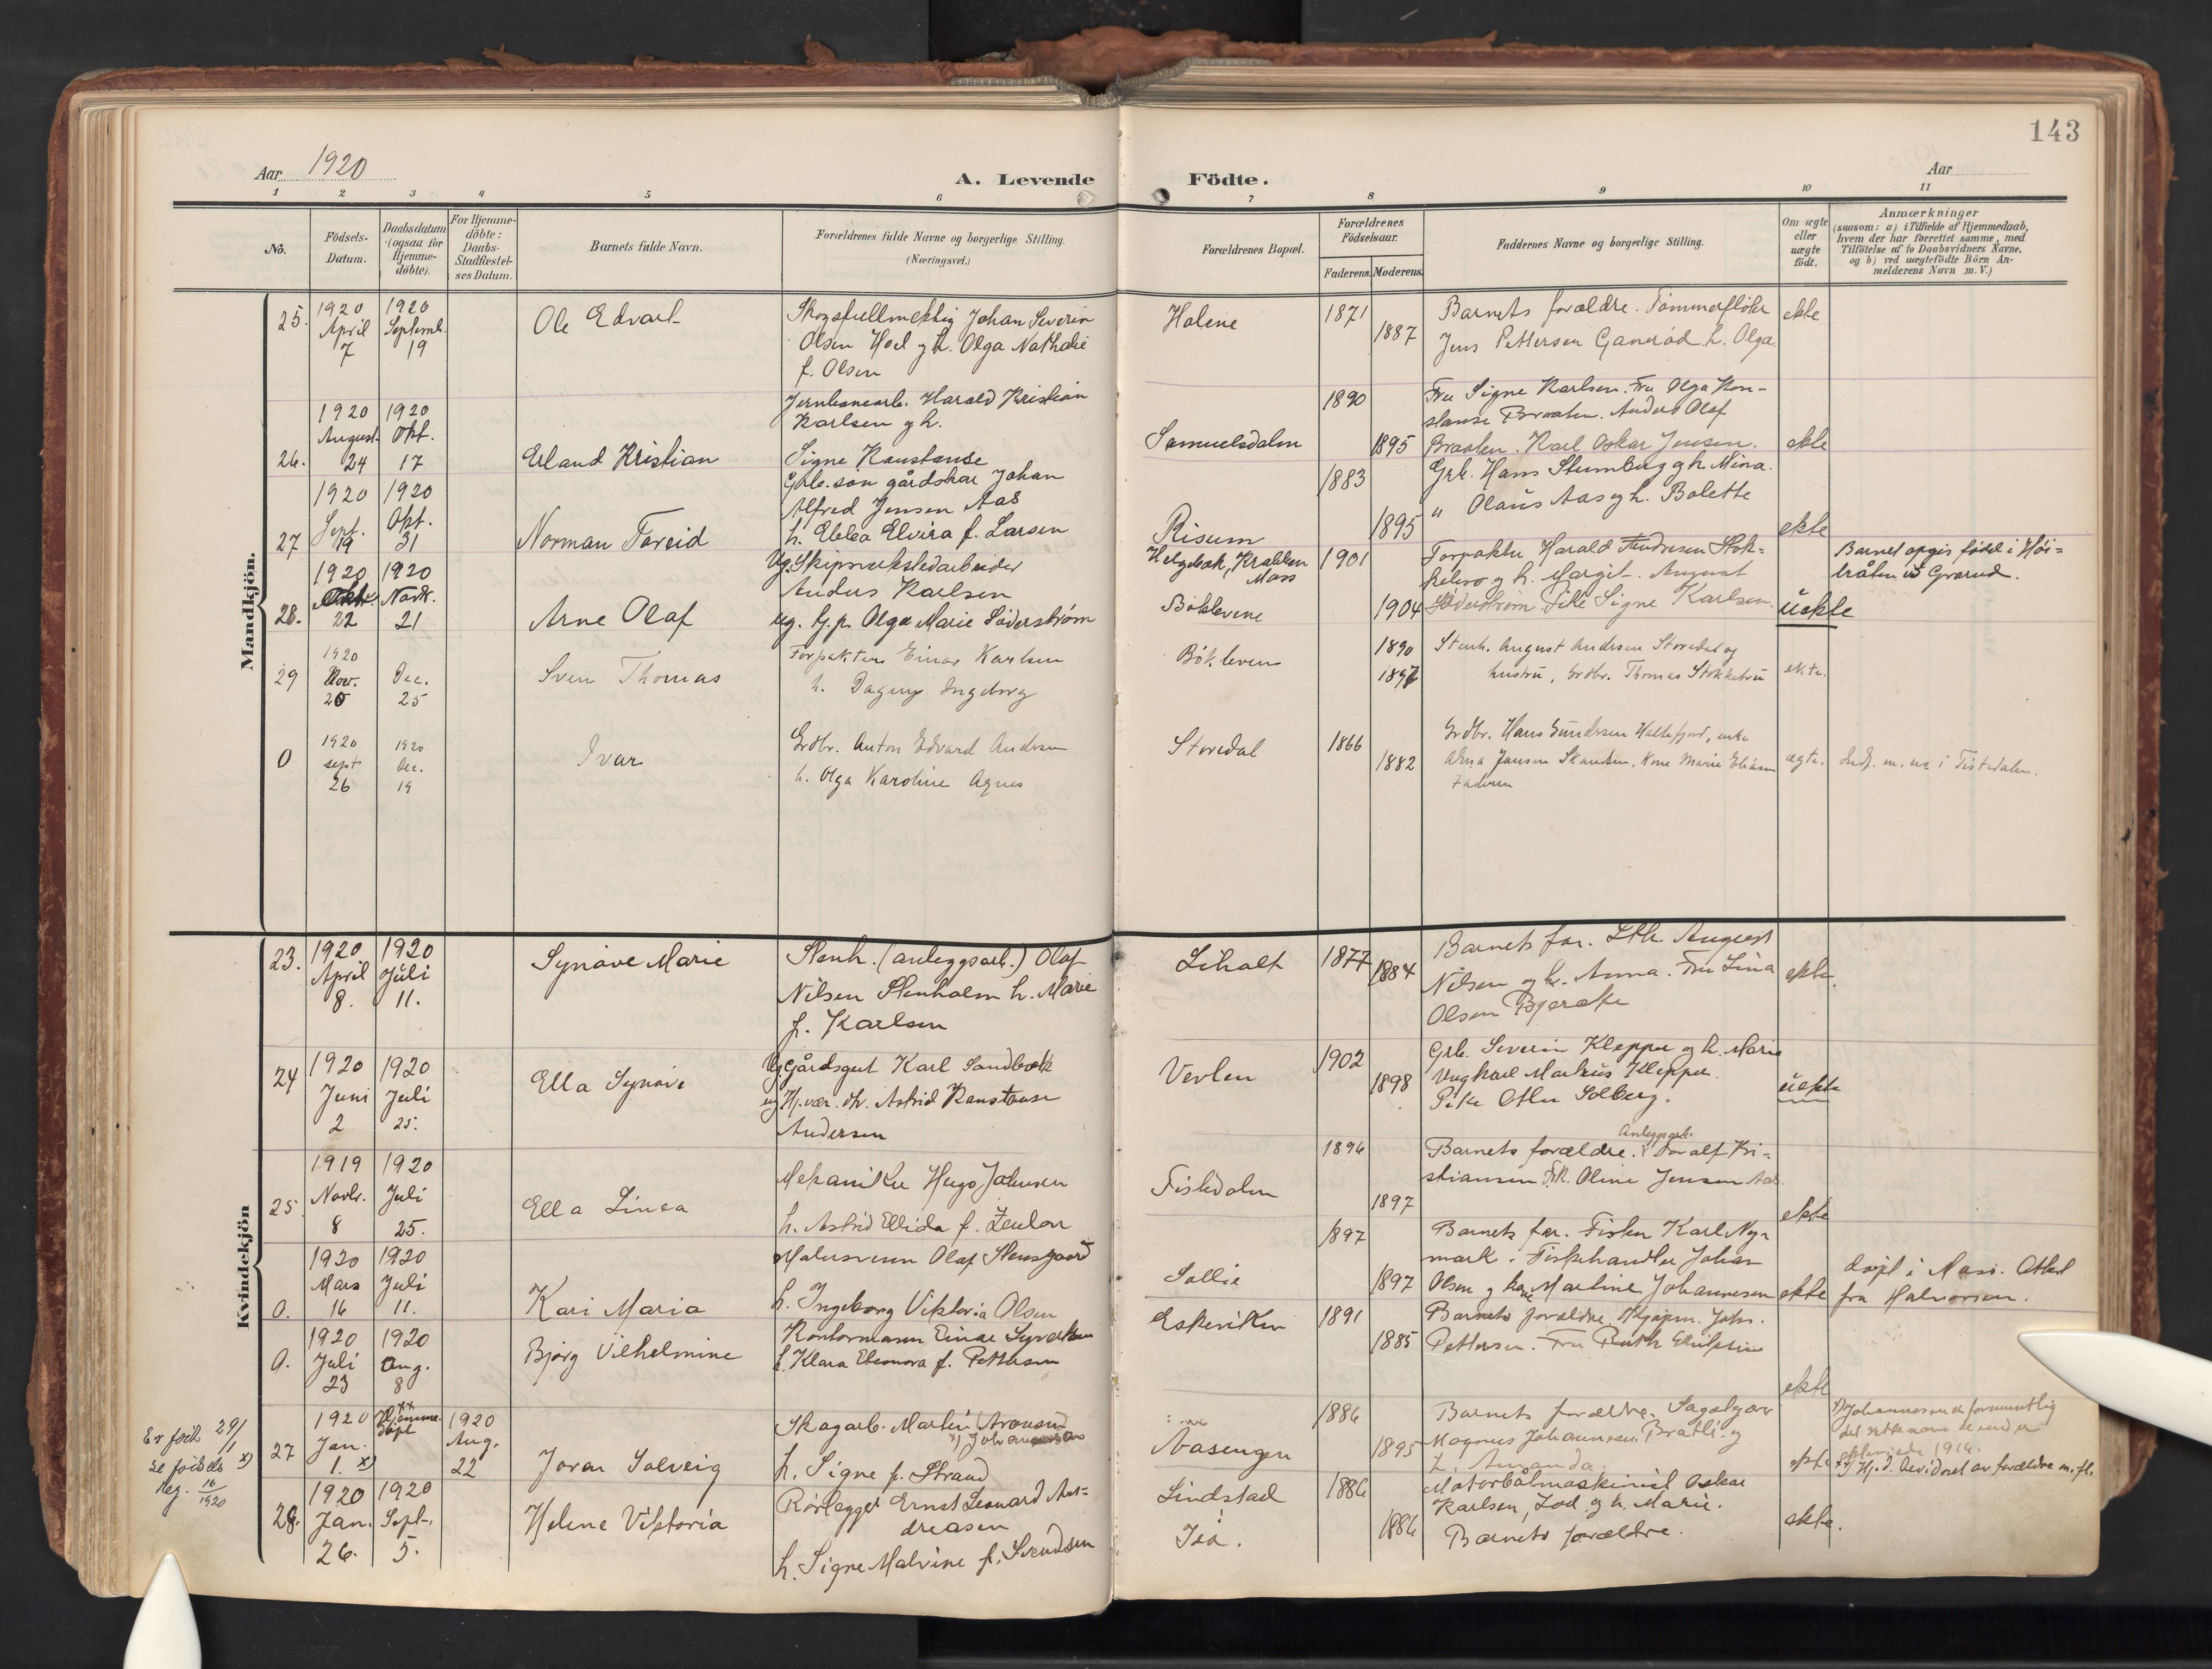 143
Aar 1920
A. Levende Födte.
Aar
1 2 3 4 5 6 7 8 9 10 11
No.
Födsels-Datum.
Daabsdatum (ogsaa for Hjemme-döbte).
For Hjemme-döbte: Daabs-Stadfæstel-ses Datum.
Barnets fulde Navn.
Forældrenes fulde Navne og borgerlige Stilling.
(Næringsvei.)
Forældrenes Bopæl.
Forældrenes Födselsaar.
Faderens. Moderens.
Faddernes Navne og borgerlige Stilling.
Om ægte eller uægte födt.
Anmærkninger
(saasom: a) i Tilfælde af Hjemmedaab, hvem der har forrettet samme, med Tilföielse af to Daabsvidners Navne, og b) ved uægtefödte Börn An-melderens Navn m. V.)
Mandkjön.
25. 1920 April 7
1920 Septemb. 19
Ole Edvart
Skogsfullmektig Johan Severin
Olsen Hoel og h. Olga Nathalie
f. Olsen
Holene
1871
1887
Barnets forældre. Tømmerfløter
Jens Pettersen Ganerød h. Olga
ekte
26. 1920 August 24
1920 Okt. 17
Erland Kristian
Jernbanearb. Harald Kristian
Karlsen og h.
Signe Konstanse
Samuelsdalen
1890
1895
Fru Signe Karlsen. Fru Olga Kon-
stanse Braaten. Anders Olaf
Braaten. Karl Oskar Jensen.
ekte
27 1920 Sept. 19
1920 Okt. 31
Norman Toreid
Grb. søn gårdskar Johan
Alfred Jensen Aas
h. Ebba Elvira f. Larsen
Risum
1883
1895
Grb. Hans Stumberg og h. Mina.
" Olaus Aas og h. Bolette
ekte
28. 1920 Okt. 22
1920 Novb. 21
Arne Olaf
Ug. Skipsverkstedarbeider
Anders Karlsen
ug. tj.p. Olga Marie Söderstrøm
Helgebok, Krabben Moss
Böklevene
1901
1904
Forpakter Harald Andresen Stok-
kebro og h. Margit. August
Söderstrøm. Pike Signe Karlsen.
uekte
Barnet opgis født i Høi=
bråten ved Grorud.
29 1920 Nov. 20
Dec. 25
Sven Thomas
Forpakter Einar Karlsen
h. Dagny Ingeborg
Böklevene
1890
1897
Stenh. August Andersen Storedal og
hustru, Grdbr. Thomas Stokkebru
ekte.
0 1920 sept 26
1920 Dec. 19
Ivar
Grdbr. Anton Edvard Andersen
h. Olga Karoline Agnes
Storedal
1866
1882
Grdbr. Hans Gundersen Hallefjord, enke
Anna Jansen Skanden. Kone Marie Eliasen
Faderen
ægte.
Indf. m. nr i Tistedalen.
Kvindekjön
23. 1920 April 8.
1920 Juli 11.
Synøve Marie
Stenh. (anleggsarb.) Olaf
Nilsen Stenholm h. Marie
f. Karlsen
Liholt
1877
1884
Barnets far. Sth. August
Nilsen og h. Anna. Fru Lina
Olsen Bjercke
ekte.
24 1920 Juni 2
1920 Juli 25.
Ella Synøve
Ug. Gårdsgut Karl Sandbæk
ug Hj.vær. dtr. Astrid Konstanse
Andersen
Vevlen
1902
1898
Grb. Severin Kleppe og h. Marie
Ungkarl Markus Kleppe.
Pike Otler Solberg.
uekte
25 1919 Novb. 8
1920 Juli 25.
Ella Linea
Mekaniker Hugo Johansen
h. Astrid Ellida f. Zeulon
Tistedalen
1896
1897
Barnets forældre. Anleggsarb. Toralf Kri-
stiansen Frk. Oline Jensen Aas
ekte
0. 1920 Mars 16
1920 Juli 11.
Kari Maria
Malersvenn Olaf Stensgaard
h. Ingeborg Viktoria Olsen
Sollie
1897
1897
Barnets far. Fisker Karl Ny-
mark. Fiskehandler Johan
Olsen og kone Martine Johannesen
ekte
døpt i Moss. Attest
fra Halvorsen.
0. 1920 Juli 23
1920 Aug. 8
Bjørg Vilhelmine
Kontormann Einar Syvertsen
h. Klara Eleonora f. Pettersen
Eskeviken
1891
1885
Barnets forældre. Kjøpm. Johs.
Pettersen. Fru Ruth
ekte
Er født 29/1
se fødsels x)
reg. 16/1920
27 1920 Jan. 1. x)
xx Hjemme døpt
1920 Aug. 22
Joran Solveig
Skogarb. Martin Aronsen
x) Johannessen
h. Signe f. Strand
Aasengen
1886
1895
Barnets forældre. Sagskjærer
Magnus Johannesen Bratli og
h. Amanda.
ekte
x) Johannesen er formentlig
det rette navn
1914.
xx) Hj.d. bevidnet av forældre m. fl.
28. 1920 Jan. 26.
1920 Sept. 5.
Helene Viktoria
Rørlegger Ernst Leonard An-
dreasen
h. Signe Malvine f. Svendsen
Lindstad
Iså.
1886
1886
Motorbåtmaskinist Oskar
Karlsen, Lod. og h. Marie.
Barnets forældre.
ekte.